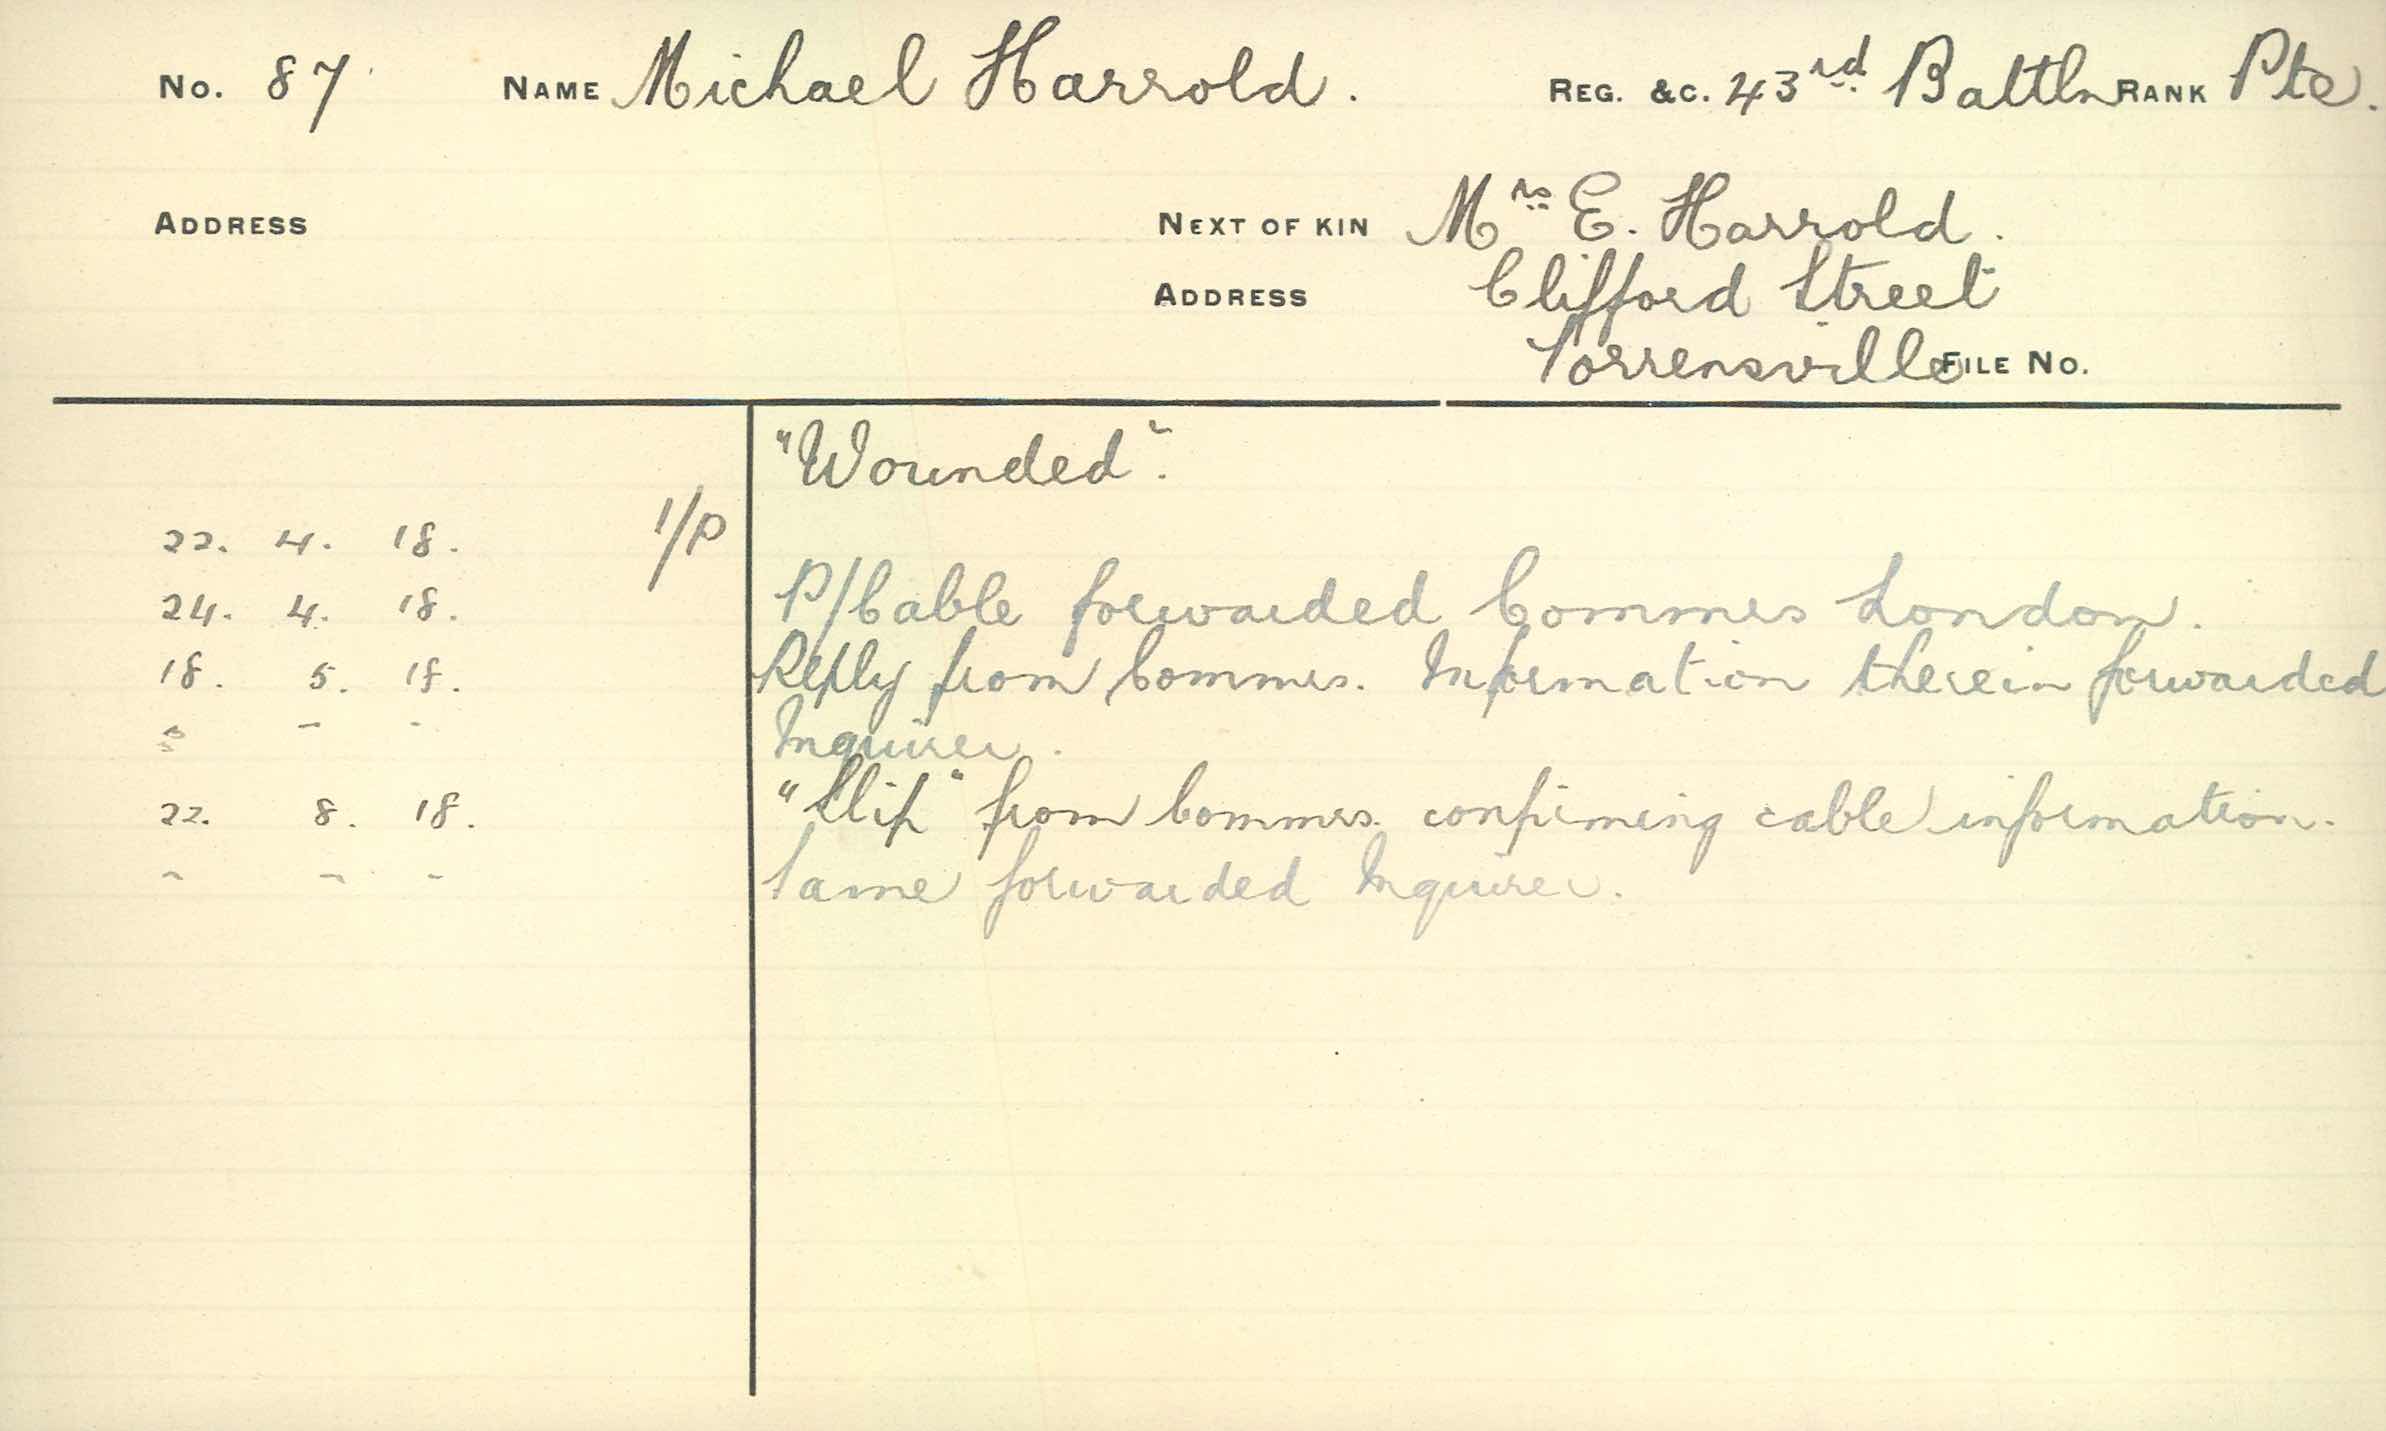 No. 87 NAME Michael Harrold. REG. &C. 43rd Battln RANK Pte.
ADDRESS NEXT OF KIN Mrs E. Harrold.
ADDRESS Clifford Street
Torrensville FILE No.
"Wounded".
22. 4. 18. 1/P
24. 4. 18. P/Cable forwarded Commrs London.
18. 5. 18. Reply from Commrs. Information therein forwarded
" - - Inquirer.
22. 8. 18. "Slip" from Commrs. confirming cable information.
- - - Same forwarded Inquirer.